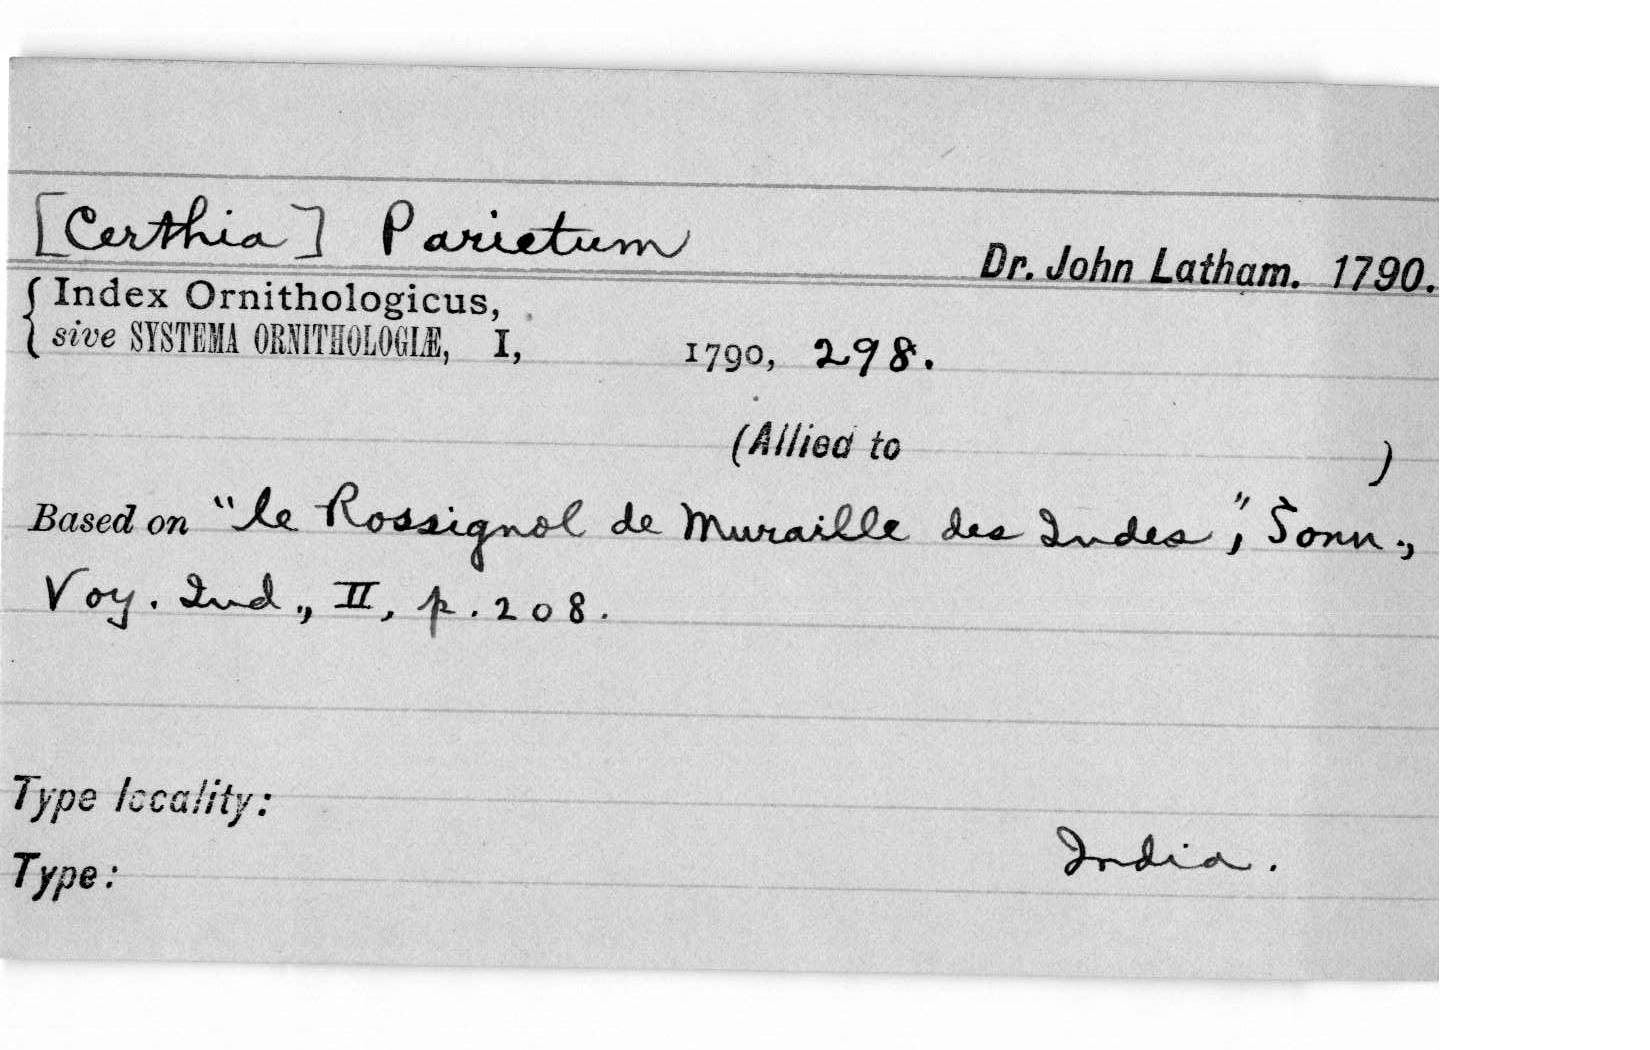 [Certhia] Parietum Dr. John Latham. 1790.
{ Index Ornithologicus,
sive SYSTEMA ORNITHOLOGIÆ, I, 1790, 298.
(Allied to )
Based on "le Rossignol de Muraille des Indes", Sonn.,
Voy. Ind., II, p. 208.
Type locality:
India.
Type: